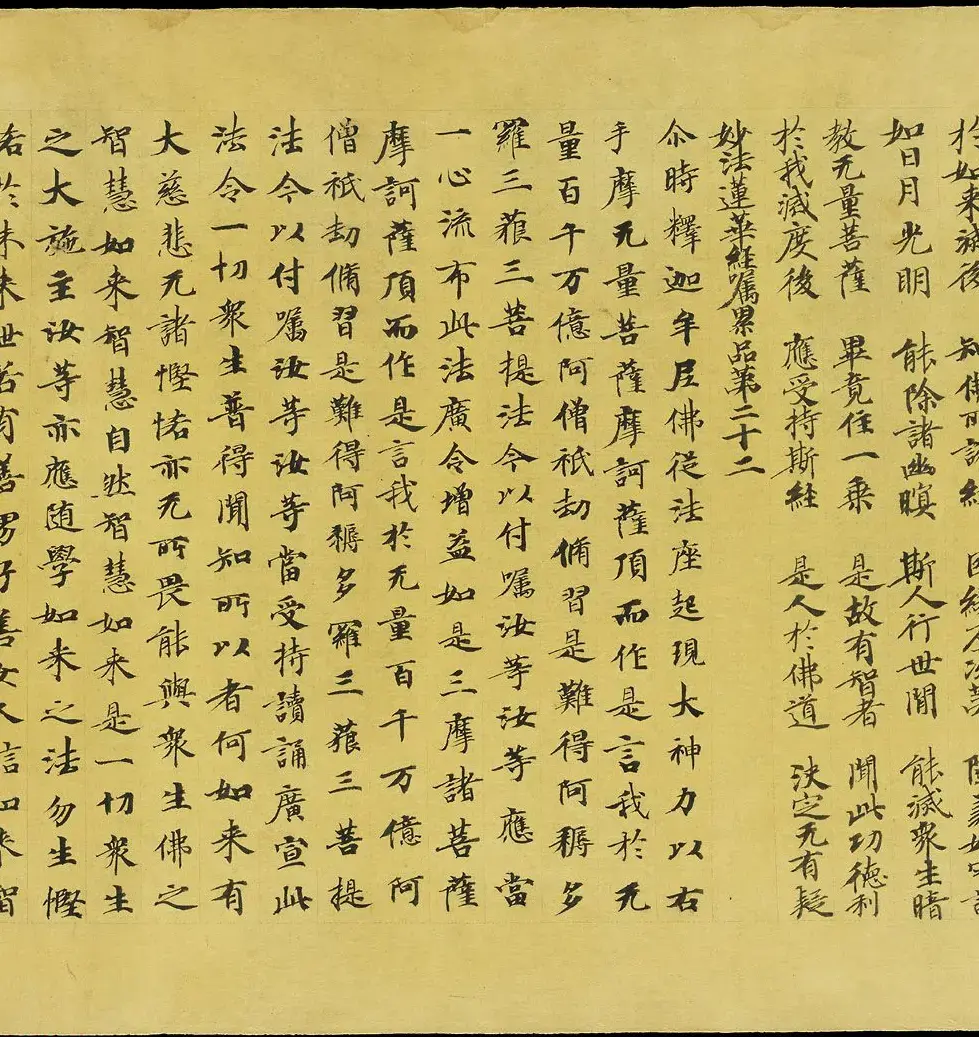 於如来滅後 知佛所説經 因緣及次第 随義如實説
如日月光明 能除諸幽瞑 斯人行世間 能滅衆生暗
教无量菩薩 畢竟住一乗 是故有智者 聞此功德利
於我滅度後 應受持斯經 是人於佛道 決定无有疑
妙法蓮華經嘱累品第二十二
尒時釋迦牟尼佛従法座起現大神力以右
手摩无量菩薩摩訶薩頂而作是言我於无
量百千万億阿僧祇劫脩習是難得阿耨多
羅三藐三菩提法今以付嘱汝等汝等應當
一心流布此法廣令增益如是三摩諸菩薩
摩訶薩頂而作是言我於无量百千万億阿
僧祇劫脩習是難得阿耨多羅三藐三菩提
法今以付嘱汝等汝等當受持讀誦廣宣此
法令一切衆生普得聞知所以者何如来有
大慈悲无諸慳悋亦无所畏能與衆生佛之
智慧如来智慧自然智慧如来是一切衆生
之大施主汝等亦應随學如来之法勿生慳
若於未来世若有善男子善女人信如来智